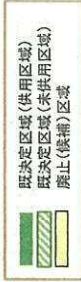 既決定区域(供用区域)
既決定区域(未供用区域)
廃止(候補)区域